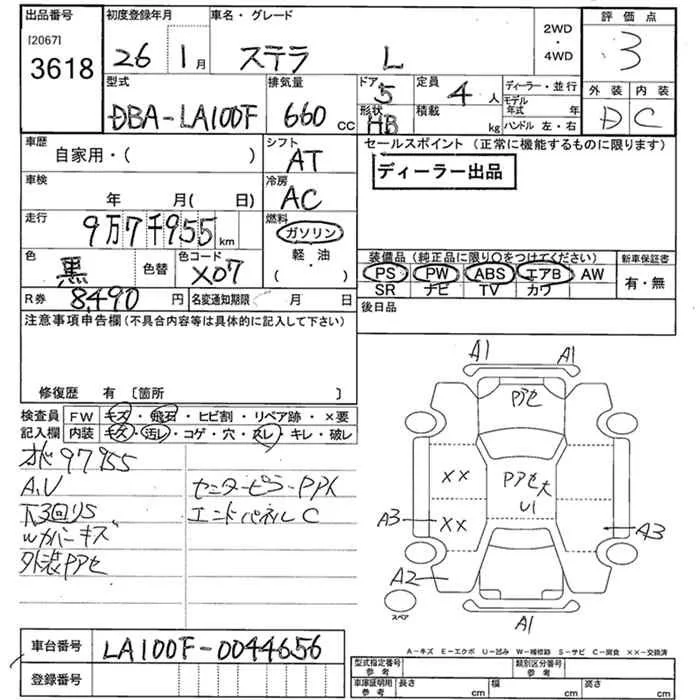 出品番号
[2067]
3618
初度登録年月
26 1月
車名・グレード
ステラ L
2WD
・
4WD
評価点
3
型式
DBA-LA100F
排気量
660 CC
ドア
5
形状
HB
定員
4 人
積載
kg
ディーラー・並行
モデル年式 年
ハンドル 左・右
外装 内装
D C
車歴
自家用・( )
シフト
AT
車検
年 月( 日)
冷房
AC
走行
9万7千955km
燃料
ガソリン
軽・油
( ・ )
色
黒
色替
色コード
X07
R券
8,490 円
名変通知期限 月 日
セールスポイント (正常に機能するものに限ります)
ディーラー出品
装備品 (純正品に限り○をつけてください)
PS PW ABS エアB AW
SR ナビ TV カワ
新車保証書
有・無
後日品
注意事項申告欄(不具合内容等は具体的に記入して下さい)
修復歴 有 〔箇所 〕
検査員
記入欄
FW キズ・飛石・ヒビ割・リペア跡・×要
内装 キズ・汚レ・コゲ・穴・スレ・キレ・破レ
オド97955
A,V
下3回リS
Wカバーキズ
外装PPセ
センターピラーPPイ
エンドパネルC
A1
A1
PPセ
××
PPセ大
U1
A3
××
A3
A2
A1
スペア
A-キズ E-エクボ U-凹み W-補修跡 S-サビ C-腐食 ××-交換済
車台番号
LA100F-0044656
登録番号
型式指定番号
参考
類別区分番号
参考
車庫証明用
参考
長さ cm
幅 cm
高さ cm